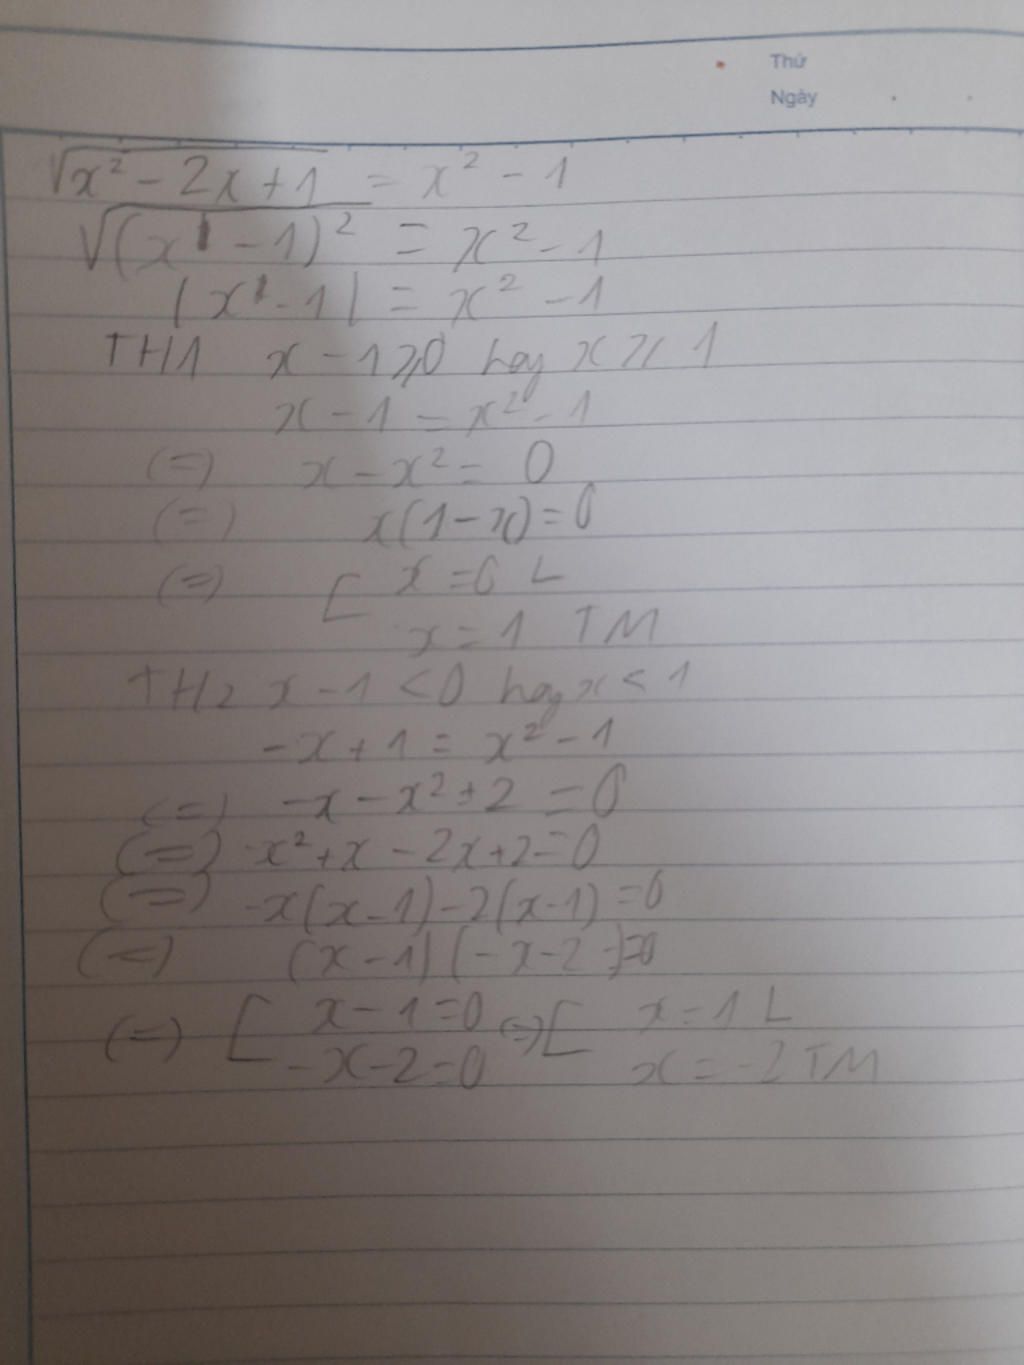 Thứ
Ngày
√x² - 2x + 1 = x² - 1
√(x - 1)² = x² - 1
|x - 1| = x² - 1
TH1 x - 1 ⩾ 0 hay x ⩾ 1
x - 1 = x² - 1
(=) x - x² = 0
(=) x(1 - x) = 0
(=) [ x = 0 L
x = 1 TM
TH2 x - 1 < 0 hay x < 1
-x + 1 = x² - 1
(=) -x - x² + 2 = 0
(=) -x² + x - 2x + 2 = 0
(=) -x(x - 1) - 2(x - 1) = 0
(=) (x - 1)(-x - 2) = 0
(=) [ x - 1 = 0 (=) [ x = 1 L
-x - 2 = 0 x = -2 TM